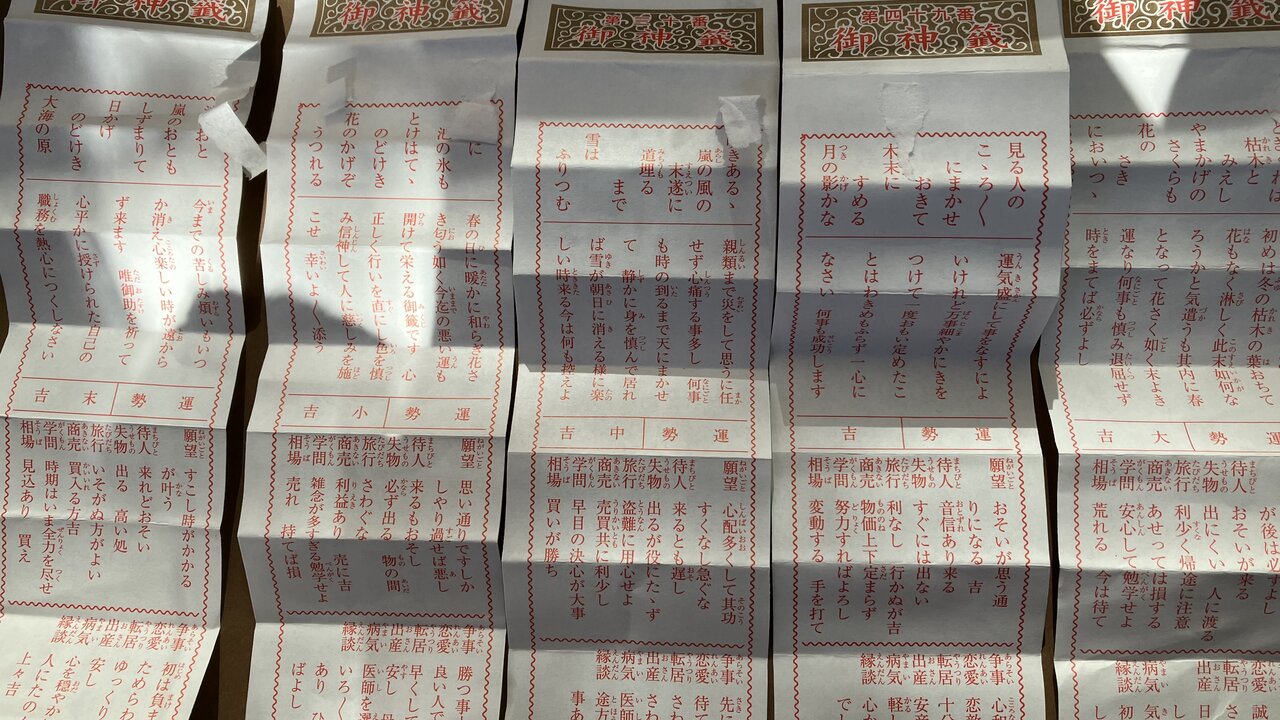 御神籤
嵐のおとも
しずまりて
日かげ
のどけき
大海の原
今までの苦しみ煩いもいつ
か消え心楽しい時が遠から
ず来ます 唯御助を祈って
心平かに授けられた自己の
職務を熱心につくしなさい
運勢 末吉
願望 すこし時がかかる
が叶う
待人 来れどおそい
失物 出る 高い処
旅行 いそがぬ方がよい
商売 買入る方吉
学問 時期はいま全力を尽せ
相場 見込あり 買え
争事 初は負
恋愛 ためらわ
転居 ゆっくり
出産 安し
病気 心を穏やか
縁談 人にたの
上々吉
御神籤
に
池の氷も
とけはてゝ
のどけき
花のかげぞ
うつれる
春の日に暖かに和らぎ花さ
き匂う如く今迄の悪い運も
開けて栄える御籤です 心
正しく行いを直にし色を慎
み信神して人に慈しみを施
こせ 幸いよく添う
運勢 小吉
願望 思い通りですしか
しやり過せば悪し
待人 来るもおそし
失物 必ず出る 物の間
旅行 さわぐな
商売 利益あり 売に吉
学問 雑念が多すぎる勉学せよ
相場 売れ 待てば損
争事 勝つ事
恋愛 良い人で
転居 早くして
出産 安し
病気 医師を
縁談 いろ
あり ひ
ばよし
第三十番
御神籤
きあるゝ
嵐の風の
末遂に
道埋る
まで
雪は
ふりつむ
親類まで災をして思うに任
せず心痛する事多し 何事
も時の到るまで天にまかせ
て 静かに身を慎んで居れ
ば雪が朝日に消える様に楽
しい時来る今は何も控えよ
運勢 中吉
願望 心配多くして其功
すくなし急ぐな
待人 来るとも遅し
失物 出るが役にたゝず
旅行 盗難に用心せよ
商売 売買共に利少し
学問 早日の決心が大事
相場 買いが勝ち
争事 先に
恋愛 待て
転居 さわ
出産
病気 医師
縁談 途方
事あ
第四十九番
御神籤
見る人の
こゝろ〱
にまかせ
おきて
木末に
すめる
月の影かな
運気盛にして事をなすによ
いけれど万事細やかにきを
つけて一度おい定めたこ
とはわきめもふらず一心に
なさい 何事も成功します
運勢 吉
願望 おそいが思う通
りになる 吉
待人 音信あり来る
失物 すぐには出ない
旅行 利なし 行かぬが吉
商売 物価上下定まらず
学問 努力すればよろし
相場 変動する 手を打て
争事 心
恋愛 恋
転居 十
出産 安
病気 軽し
縁談 心
御神籤
枯木と
みえし
やまかげの
さくらも
花の
さき
においつゝ
初めは冬の枯木の葉おちて
花もなく淋しく此末如何な
ろうかと気遣うも其内に春
となって花さく如く末よき
運なり何事も慎み退屈せず
時をまてば必ずよし
運勢 大吉
が後は必ずよし
待人 おそいが来る
失物 出にくい 人に渡る
旅行 利少し 帰途に注意
商売 あせっては損する
学問 安心して勉学せよ
相場 荒れる 今は待て
恋愛 誠
転居
出産
病気
縁談